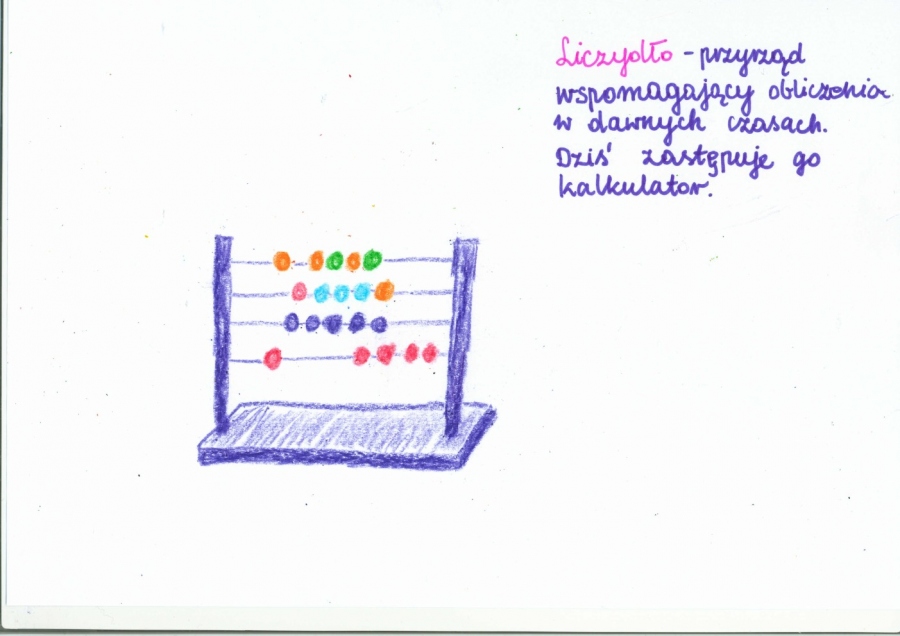 Liczydło - przyrząd
wspomagający obliczenia
w dawnych czasach.
Dziś zastępuje go
kalkulator.